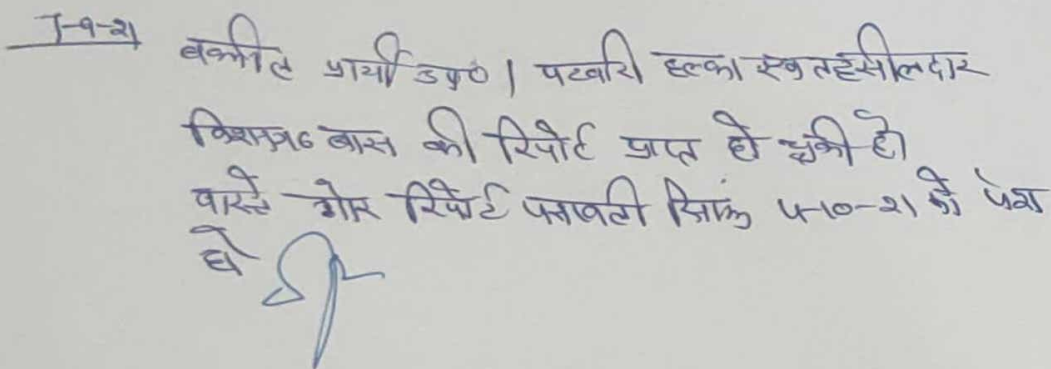 7-9-21 वकील प्रार्थी उप० | पटवारी हल्का एवं तहसीलदार
किशनगढ बास की रिपोर्ट प्राप्त हो चुकी है।
वास्ते गौर रिपोर्ट पत्रावली दिनांक 4-10-21 को पेश
हो